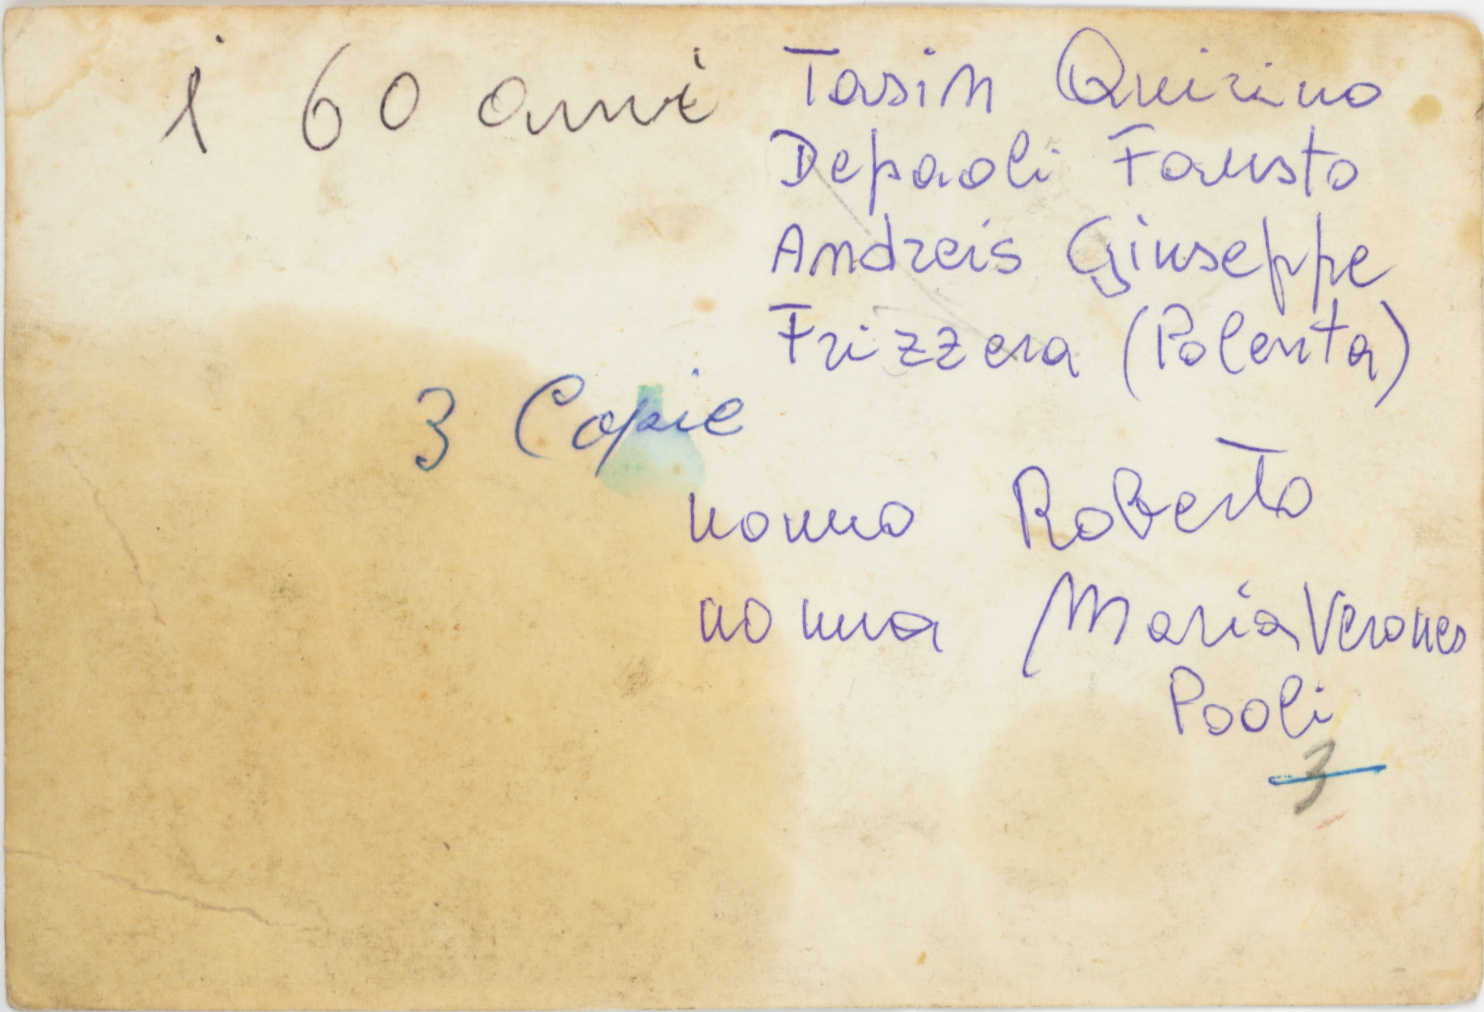 i 60 anni
Tasin Quirino
Depaoli Fausto
Andreis Giuseppe
Frizzera (Polenta)
3 Copie
nonno Roberto
nonna Maria Verones
Paoli
3